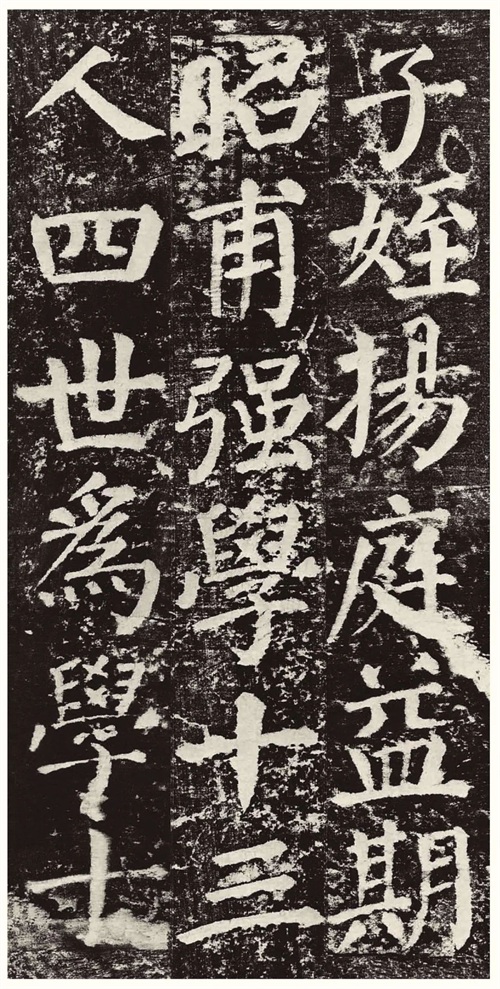 子姪揚庭益期
昭甫强學十三
人四世為學士